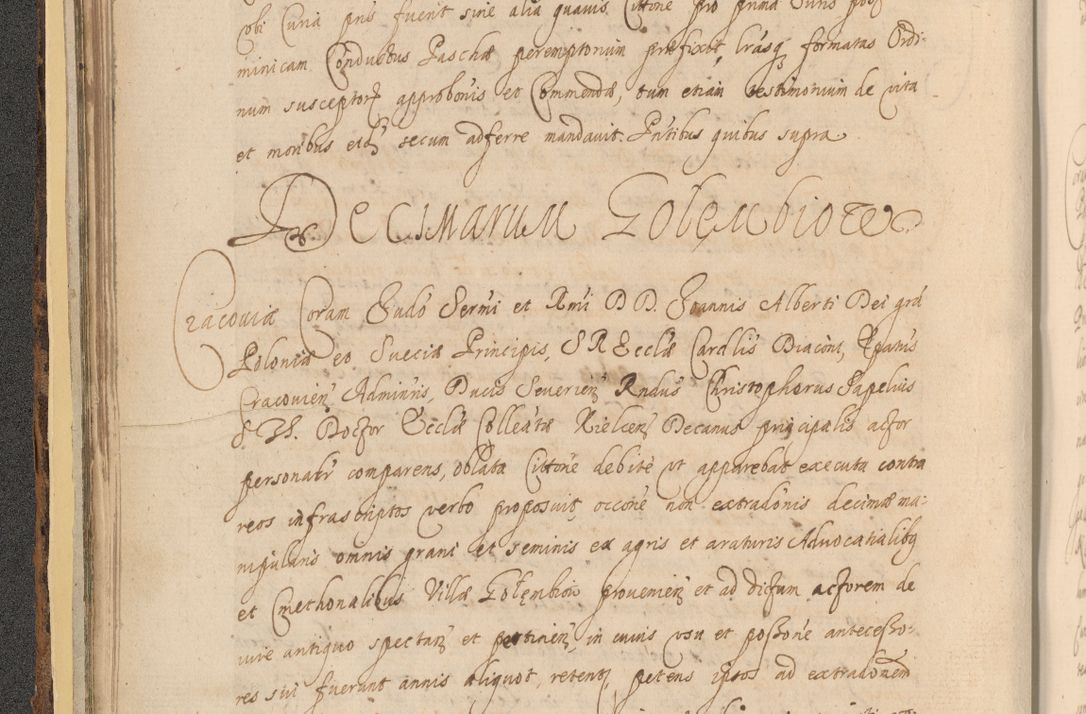 cobi Curia pñs fuerit sine alia quauis Cittõne pro prima Juris post
minicam Conductus Paschæ peremptorium præfixit, lrãsq formatas Ordi-
num susceptor approbõnis et Commendæ, tum etiam testimonium de vita
et moribus eid secum adferre mandauit. Pñtibus quibus supra
Decimarum Golembiow
Cracouiæ Coram Judõ Sermi et Rmi D D. Joannis Alberti Dei grã
Poloniæ et Sueciæ Principis, S R Ecclæ Cardlis Diacõni, Epatus
Cracouien Adminris, Ducis Seuerien Rndus Christophorus Sapelius
S Th. Doctor Ecclæ Colleatæ Kielcen Decanus principalis actor
personatr comparens, oblata Cittone debite vt apparebat executa contra
reos infrascriptos verbo proposuit, occõne non extradõnis decimæ ma-
nipularis omnis grani et seminis ex agris et araturis Aduocatialibq
et Cmethonalibus Villæ Golembiow prouenien et ad dictum actorem de
iure antiquo spectan et pertinen, in cuius vsu et possone antecesso-
res sui fuerunt annis aliquot, retent, petens ipsos ad extradõnem